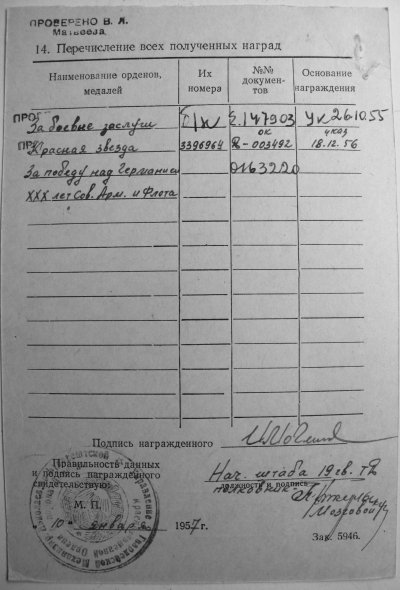 ПРОВЕРЕНО В. Я.
Матвеева
14. Перечисление всех полученных наград
Наименование орденов, медалей
Их номера
№№ документов
Основание награждения
За боевые заслуги Е.147903 Ук 261055
Красная звезда 3396964 ОК R-003492 указ 18.12.56
За победу над Германией 0163220
XXX лет Сов. Арм. и Флота
Подпись награжденного
Правильность данных
и подпись награжденного
свидетельствую:
Нач. штаба 19 гв.
полковник
должность и подпись
М. П.
10 января 1957 г.
Зак. 5946.